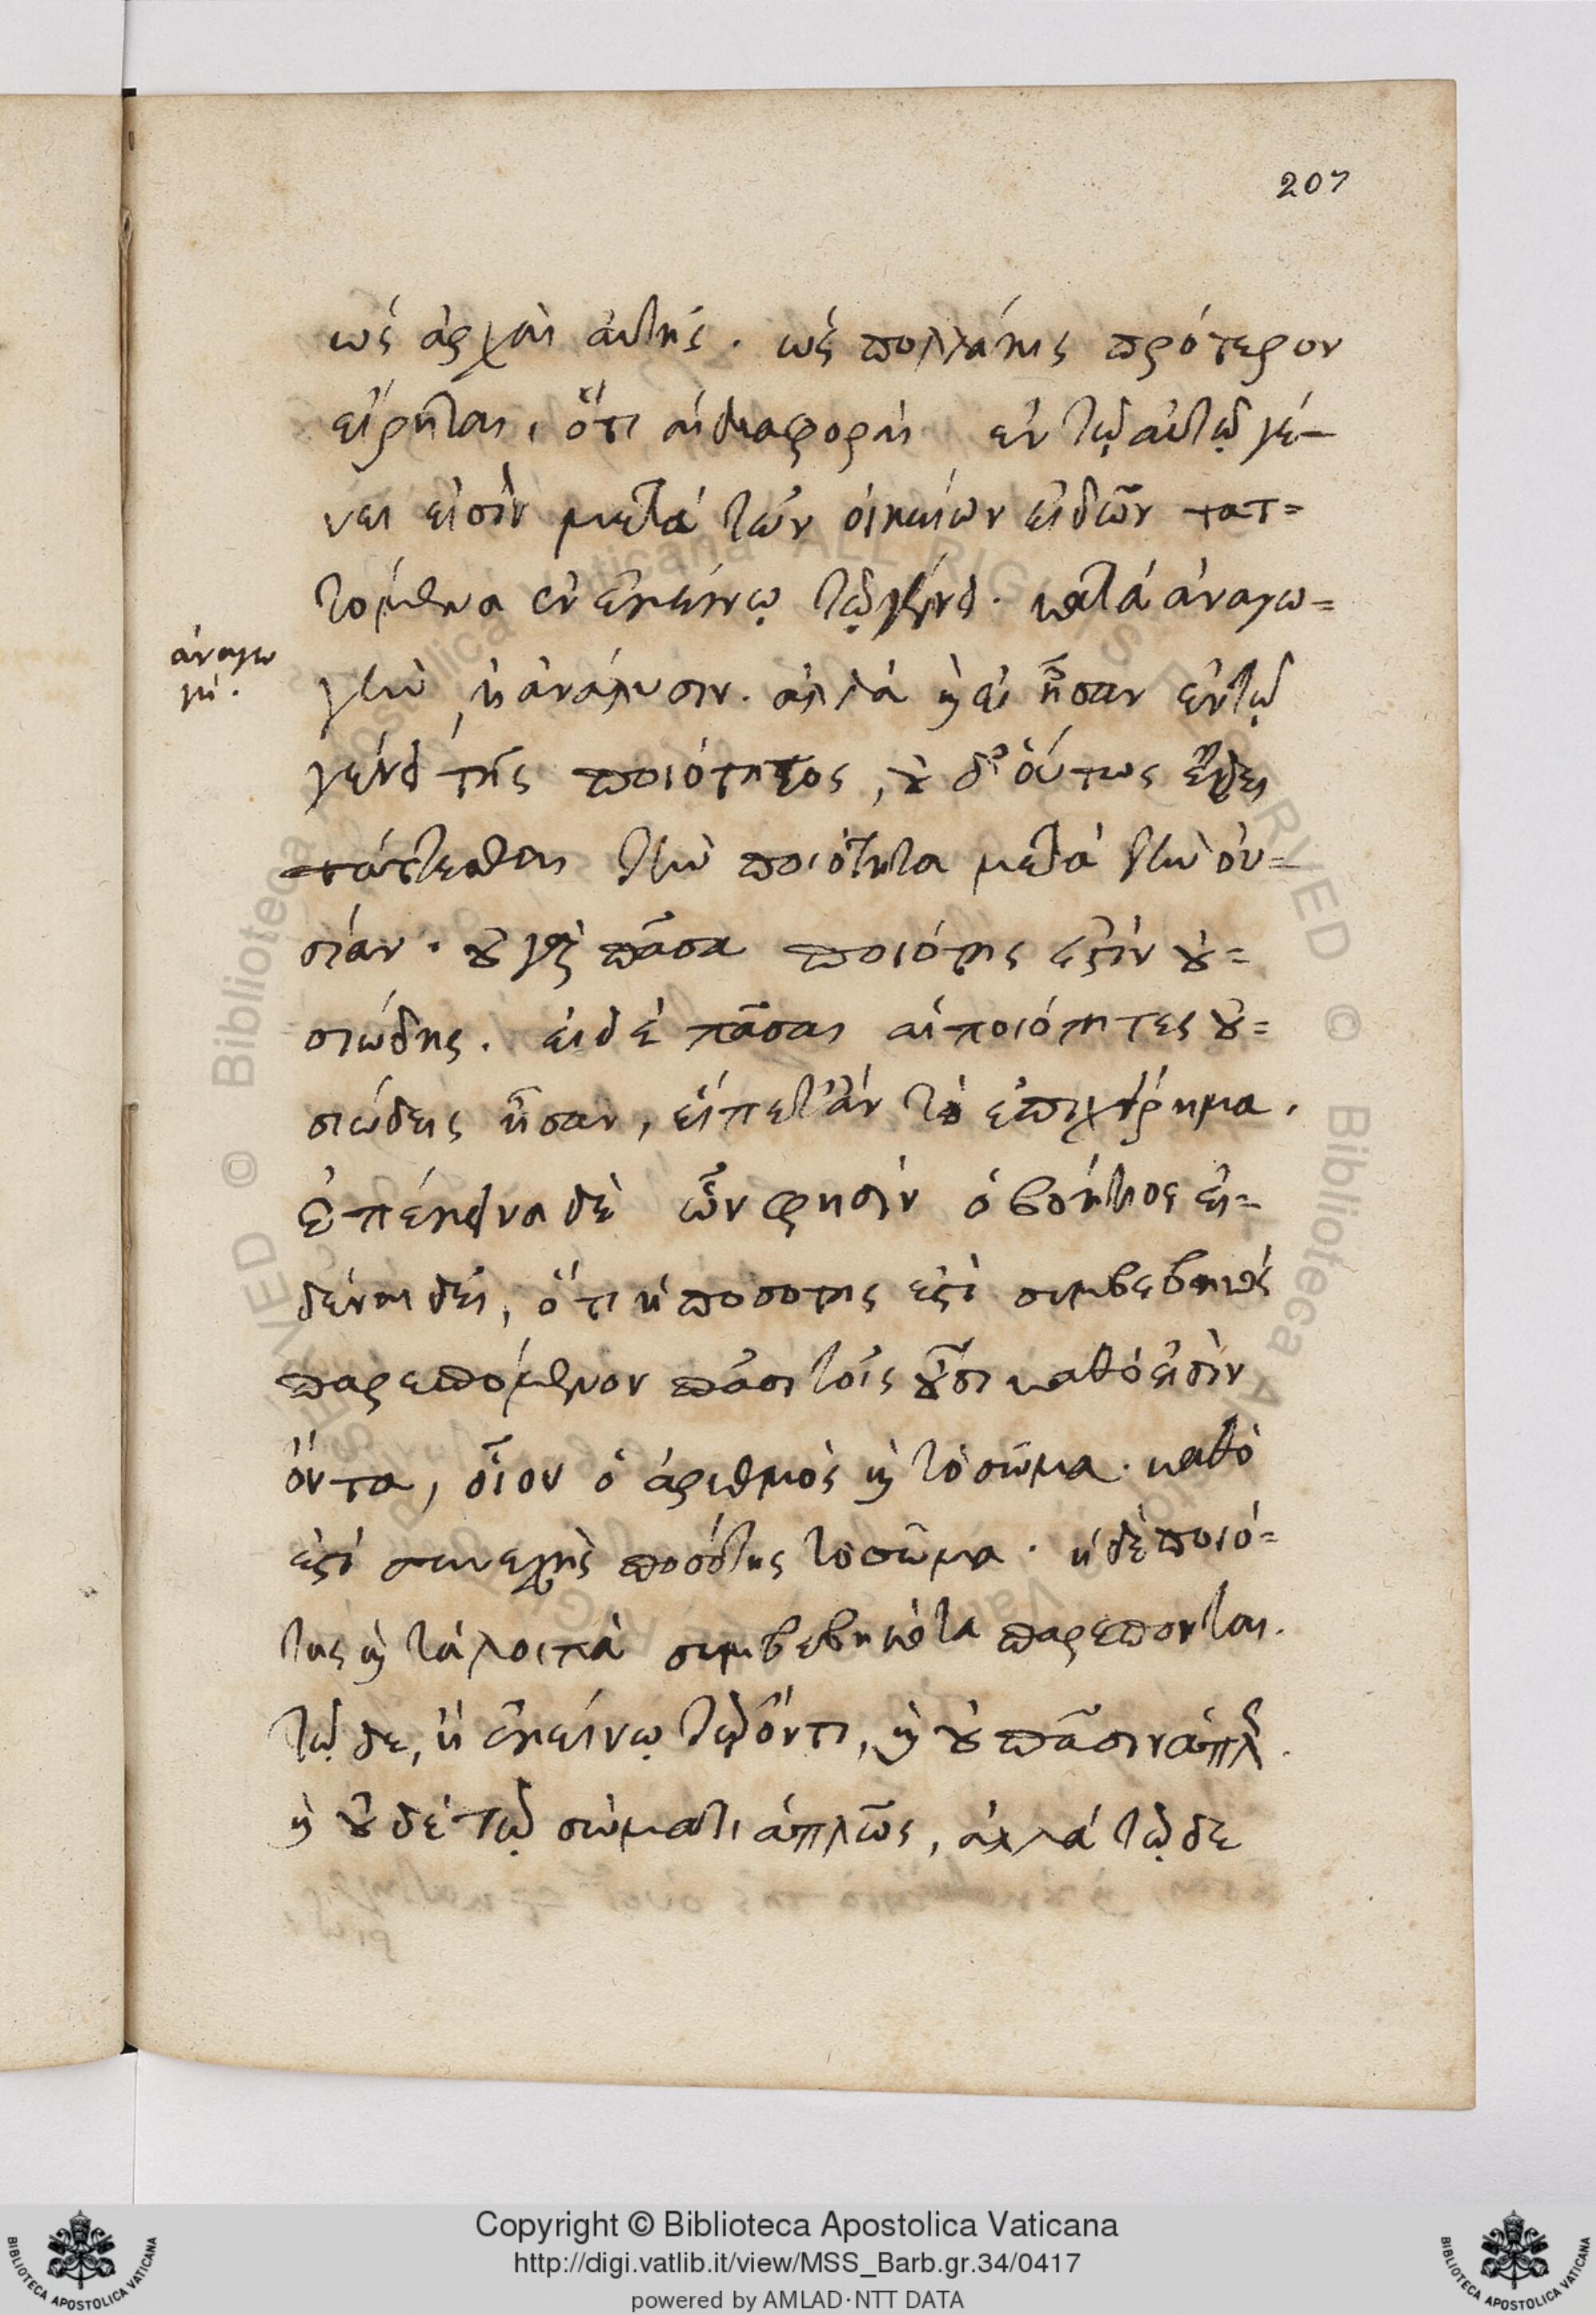 207
ὡς ἀρχαὶ αὐτῆς. ὡς πολλάκις πρότερον
εἴρηται, ὅτι αἱ διαφοραὶ ἐν τῷ αὐτῷ γέ-
νει εἰσὶν μετὰ τῶν οἰκείων εἰδῶν τατ=
τομέναι ἐν ἐκείνῳ τῷ γένει. κατὰ ἀναγω=
ἀναγω
γή.
γὴν, ἢ ἀνάλυσιν. ἀλλὰ καὶ εἰ ἦσαν ἐν τῷ
γένει τῆς ποιότητος, οὐδ' οὕτως ἔδει
τάττεσθαι τὴν ποιότητα μετὰ τὴν οὐ=
σίαν. οὐ γὰρ πᾶσα ποιότης ἐστὶν οὐ=
σιώδης. εἰ δὲ πᾶσαι αἱ ποιότητες οὐ=
σιώδεις ἦσαν, εἵπετ' ἂν τὸ ἐπιχείρημα.
ἐπέκεινα δὲ ὧν φησὶν ὁ βοήτιος εἰ=
δέναι δεῖ, ὅτι ἡ ποσότης ἐστὶ συμβεβηκὸς
παρεπόμενον πᾶσι τοῖς οὖσι καθό εἰσιν
ὄντα, οἷον ὁ ἀριθμὸς καὶ τὸ σῶμα. καθό
ἐστι συνεχὴς ποσότης τὸ σῶμα. ἡ δὲ ποιό=
της καὶ τὰ λοιπὰ συμβεβηκότα παρέπονται.
τῷδε, ἢ ἐκείνῳ τῷ ὄντι, καὶ οὐ πᾶσιν ἁπλῶς.
καὶ οὐδὲ τῷ σώματι ἁπλῶς, ἀλλὰ τῷδε
Copyright © Biblioteca Apostolica Vaticana
http://digi.vatlib.it/view/MSS_Barb.gr.34/0417
powered by AMLAD·NTT DATA